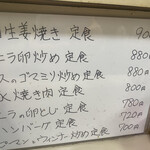 生姜焼き 定食 900
ニラ卵炒め 定食 880
スのゴマミソ炒め定食 880
焼き肉 定食 800
ニラの卵とじ 定食 780
ハンバーグ 定食 720
ーマンとウィンナー炒め定食 700